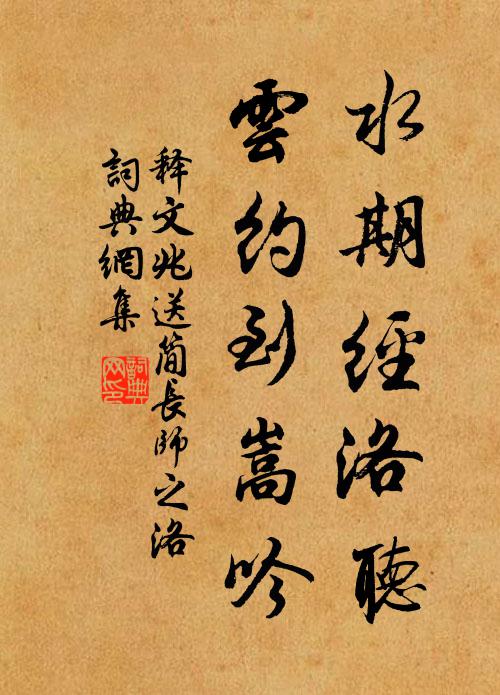 水期經洛聽
雲約到嵩吟
释文兆送简長師之洛
詞典網集
詞典
网印